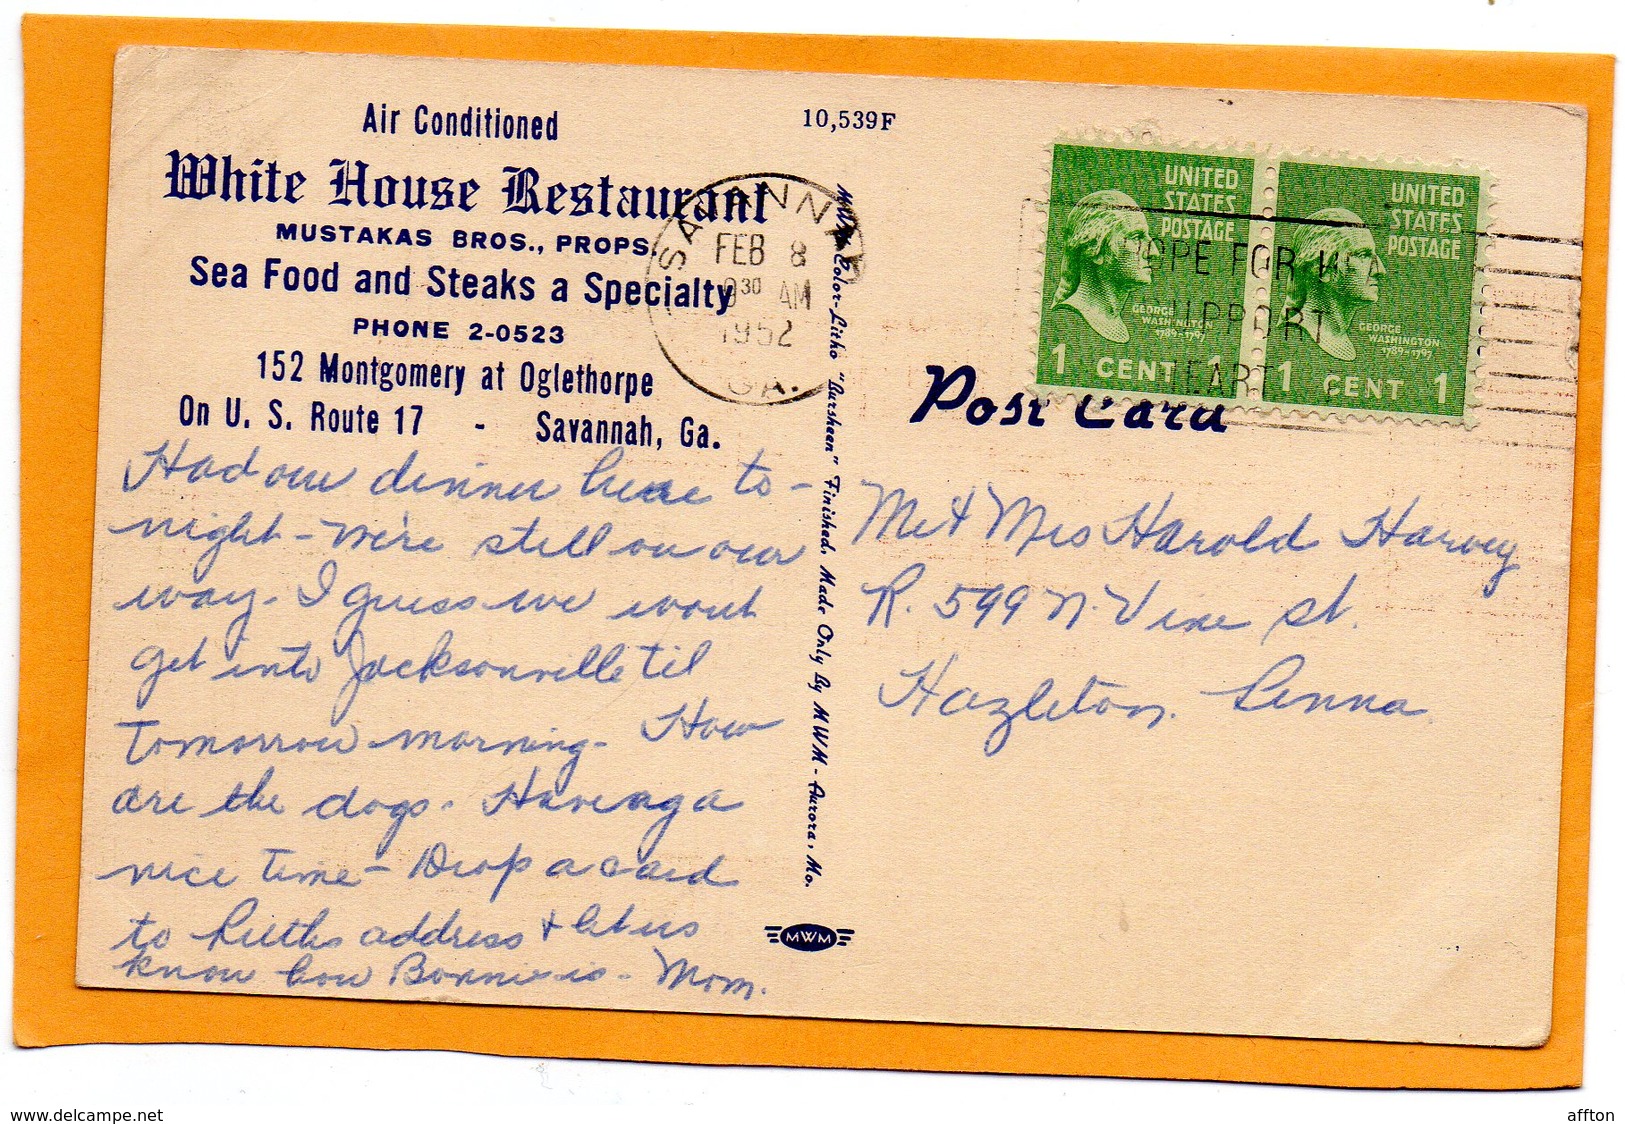 Air Conditioned
White House Restaurant
MUSTAKAS BROS., PROPS.
Sea Food and Steaks a Specialty
PHONE 2-0523
152 Montgomery at Oglethorpe
On U. S. Route 17 - Savannah, Ga.
Had our dinner here to-
night - We're still on our
way - I guess we wont
get into Jacksonville til
tomorrow morning - How
are the dogs - Have a
nice time - Drop a card
to Ruth's address & let us
know how Bonnie is - Mom.
10,539F
SAVANNAH
FEB 8
9 30 AM
1952
GA.
MWM Color-Litho "Bursheen" Finished. Made Only By MWM - Aurora, Mo.
MWM
UNITED
STATES
POSTAGE
GEORGE
WASHINGTON
1789-1797
1 CENT 1
UNITED
STATES
POSTAGE
GEORGE
WASHINGTON
1789-1797
1 CENT 1
HOPE FOR
SUPPORT
HEART
Post Card
Mr & Mrs Harold Harvey
R. 599 N. Vine St.
Hazleton, Penna.
delcampe.net
affton